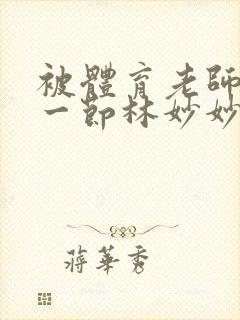 被體育老師
一節林妙妙
蔣華秀